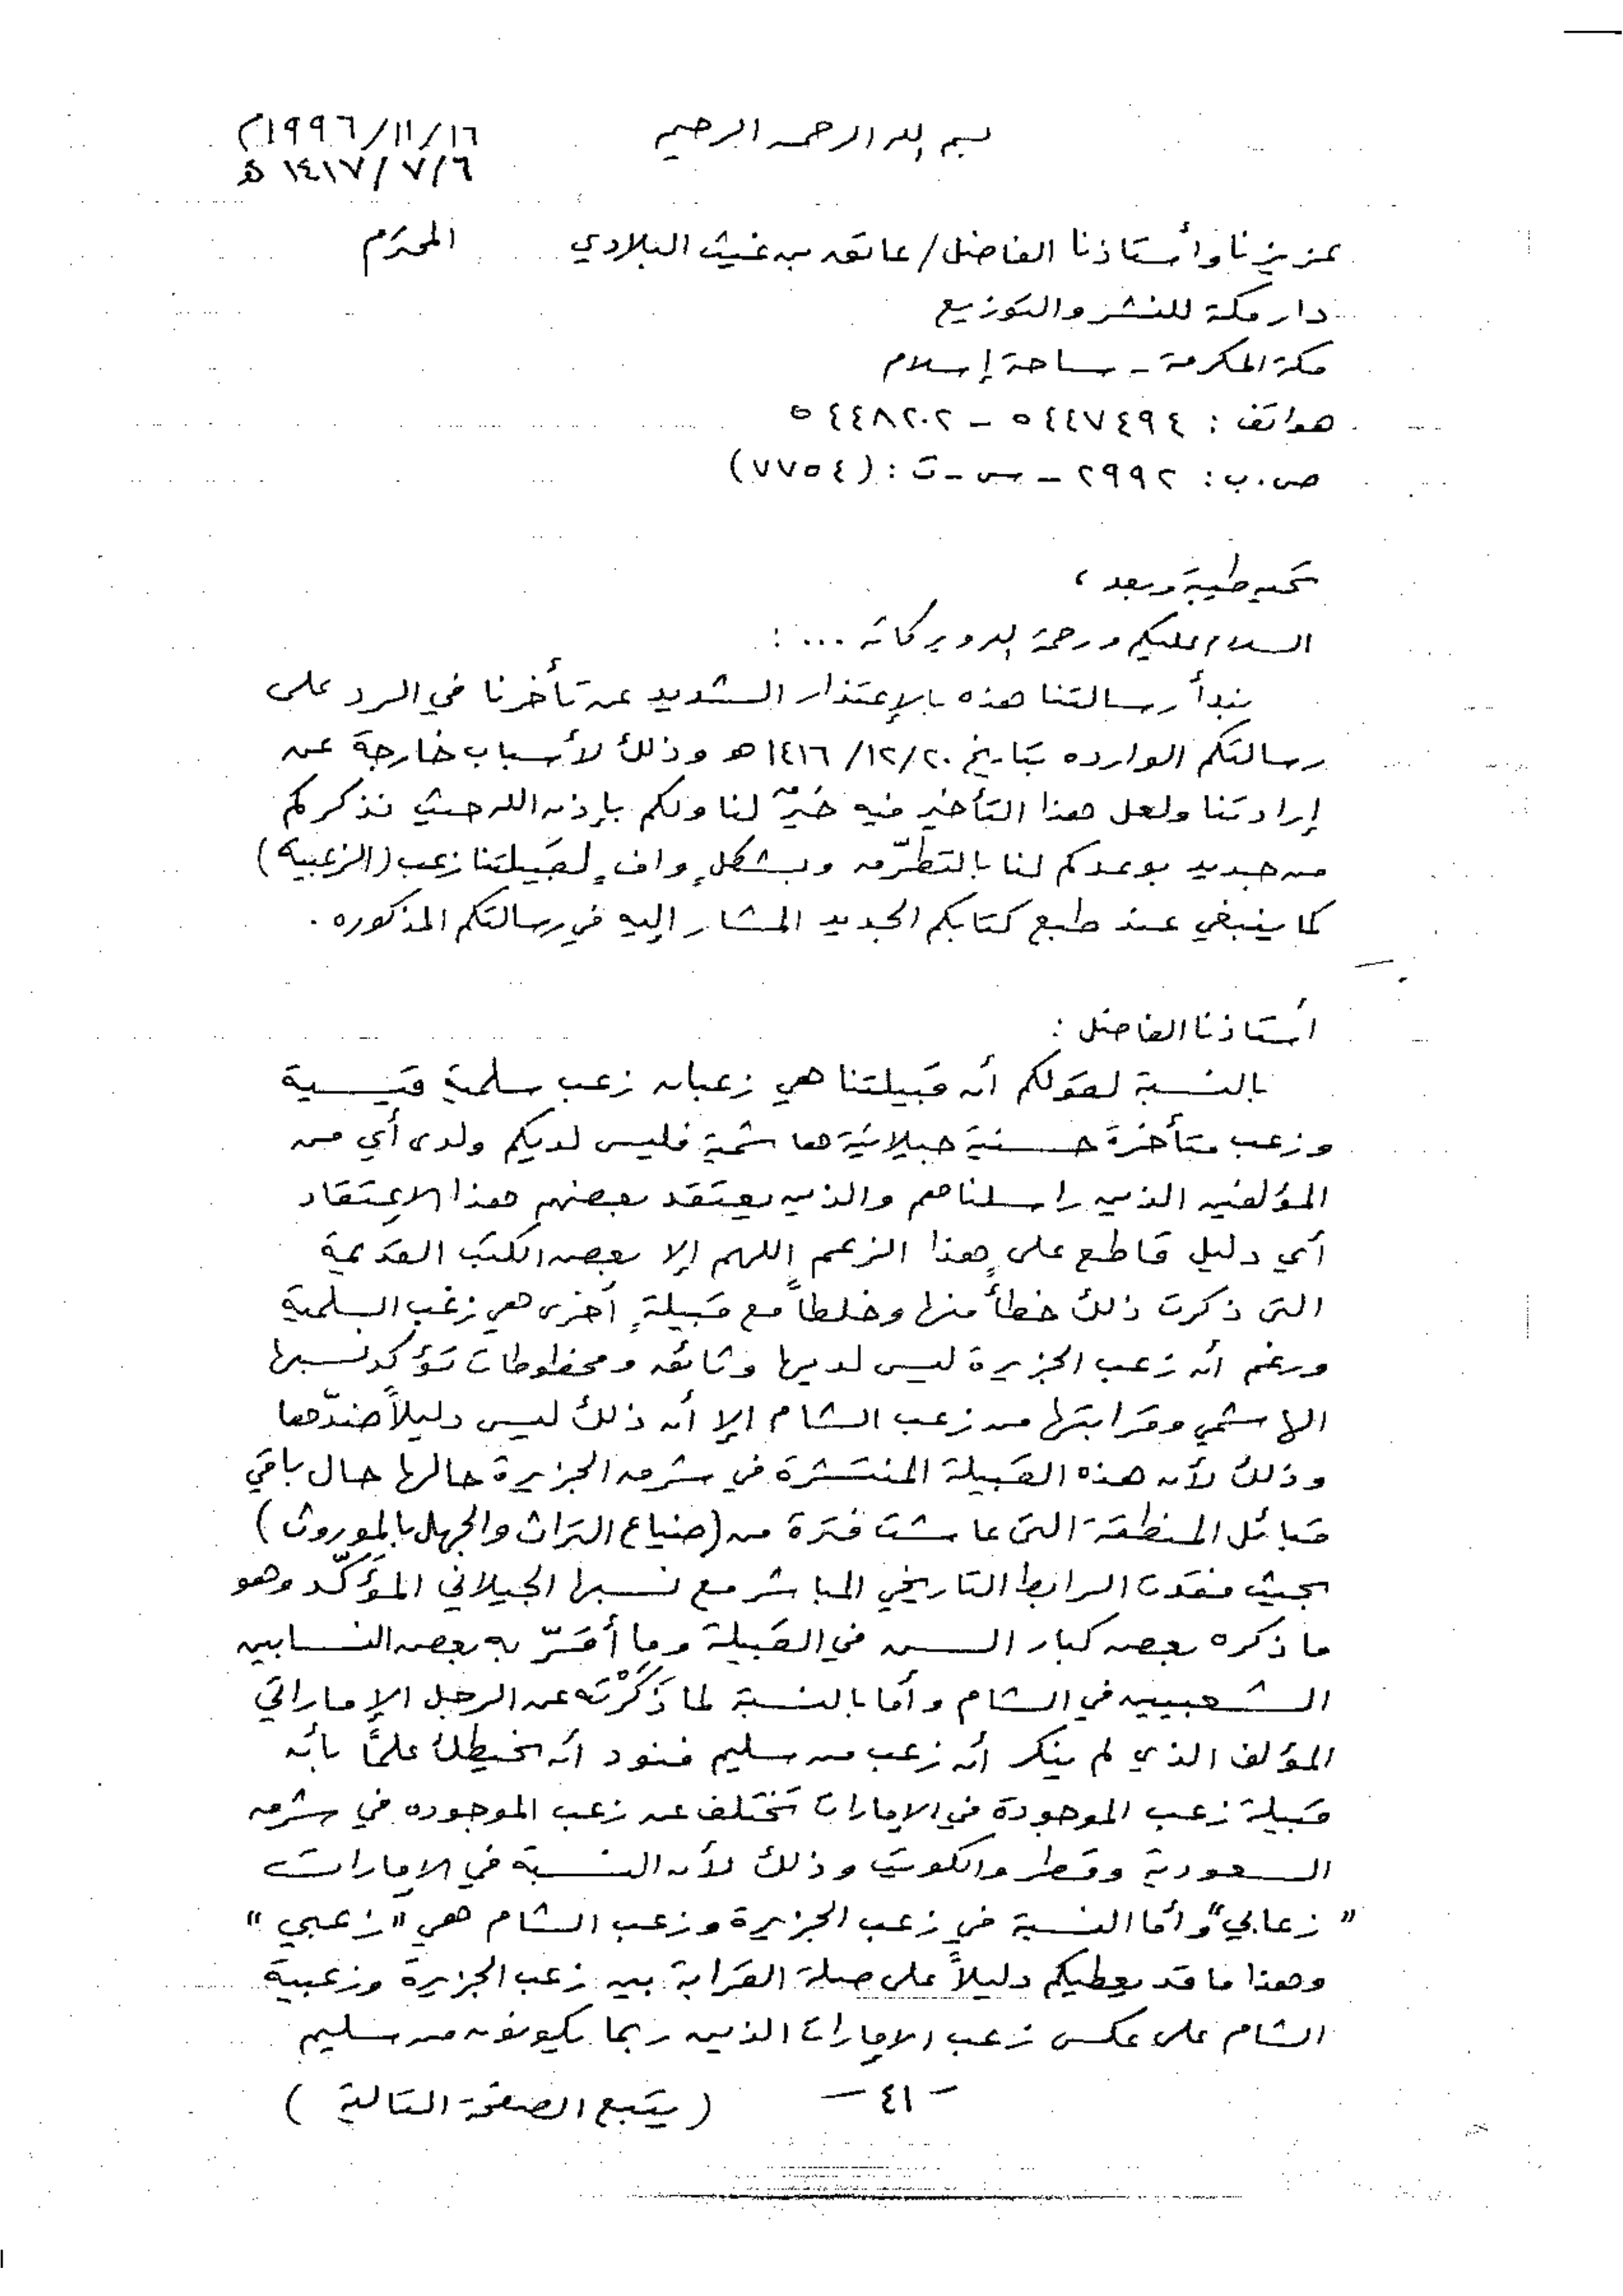 بسم الله الرحمن الرحيم
١٩٩٦/١١/١٦م
١٤١٧/٧/٦ هـ
عزيزنا وأستاذنا الفاضل/ عاتق بن غيث البلادي المحترم
دار مكة للنشر والتوزيع
مكة المكرمة - ساحة إسلام
هواتف : ٥٤٤٧٤٩٤ - ٥٤٤٨٢٠٢
ص.ب: ٢٩٩٢ - س-ت: (٧٧٥٤)
تحيه طيبة وبعد ،
السلام عليكم ورحمة الله وبركاته ... :
نبدأ رسالتنا هذه بالإعتذار الشديد عن تأخرنا في الرد على
رسالتكم الوارده بتاريخ ١٤١٦/١٢/٢٠ هـ وذلك لأسباب خارجة عن
إرادتنا ولعل هذا التأخير فيه خيرٌ لنا ولكم بإذن الله حيث نذكركم
من جديد بوعدكم لنا بالتطرّق وبشكلٍ وافٍ لقبيلتنا زعب (الزعبية)
كما ينبغي عند طبع كتابكم الجديد المشار إليه في رسالتكم المذكوره .
أستاذنا الفاضل :
بالنسبة لقولكم أن قبيلتنا هي زعبان زعب سلمية قيسية
وزعب متأخرة حسنية جيلانية هاشمية فليس لديكم ولدى أي من
المؤلفين الذين راسلناهم والذين يعتقد بعضهم هذا الاعتقاد
أي دليل قاطع على هذا الزعم اللهم إلا بعض الكتب القديمة
التي ذكرت ذلك خطأً منها وخلطاً مع قبيلةٍ أخرى هي زغب السلمية
ورغم أن زعب الجزيرة ليس لديها وثائق ومخطوطات تؤكد نسبها
الهاشمي وقرابتها من زعب الشام إلا أن ذلك ليس دليلاً ضدّها
وذلك لأن هذه القبيلة المنتشرة في شرق الجزيرة حالها حال باقي
قبائل المنطقة التي عاشت فترة من (ضياع التراث والجهل بالموروث)
بحيث فقدت الرابط التاريخي المباشر مع نسبها الجيلاني المؤكّد وهو
ما ذكره بعض كبار السن في القبيلة وما أقرّ به بعض النسابين
الشعبيين في الشام وأما بالنسبة لما ذَكَرْته عن الرجل الإماراتي
المؤلف الذي لم ينكر أن زعب من سليم فنود أن نحيطك علماً بأن
قبيلة زعب الموجودة في الإمارات تختلف عن زعب الموجوده في شرق
السعودية وقطر والكويت وذلك لأن النسبة في الإمارات
"زعابي" وأما النسبة في زعب الجزيرة وزعب الشام هي "زعبي"
وهذا ما قد يعطيكم دليلاً على صلة القرابة بين زعب الجزيرة وزعبية
الشام على عكس زعب الإمارات الذين ربما يكونون من سليم
- ٤١ -
( يتبع الصفحة التالية )